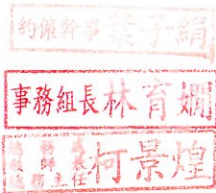 約僱幹事葉子絹
事務組長林育嫻
柯景煌